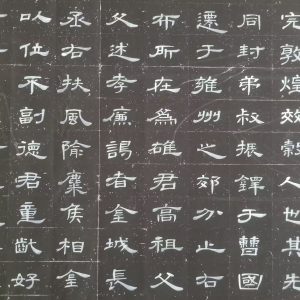 完敦煌效穀人也其先
同封弟叔振鐸于曹國
遷于雍州之郊分止右
布所在為雄君高祖父
父述孝廉謁者金城長
丞右扶風隃麋侯相金
以位不副德君童齔好